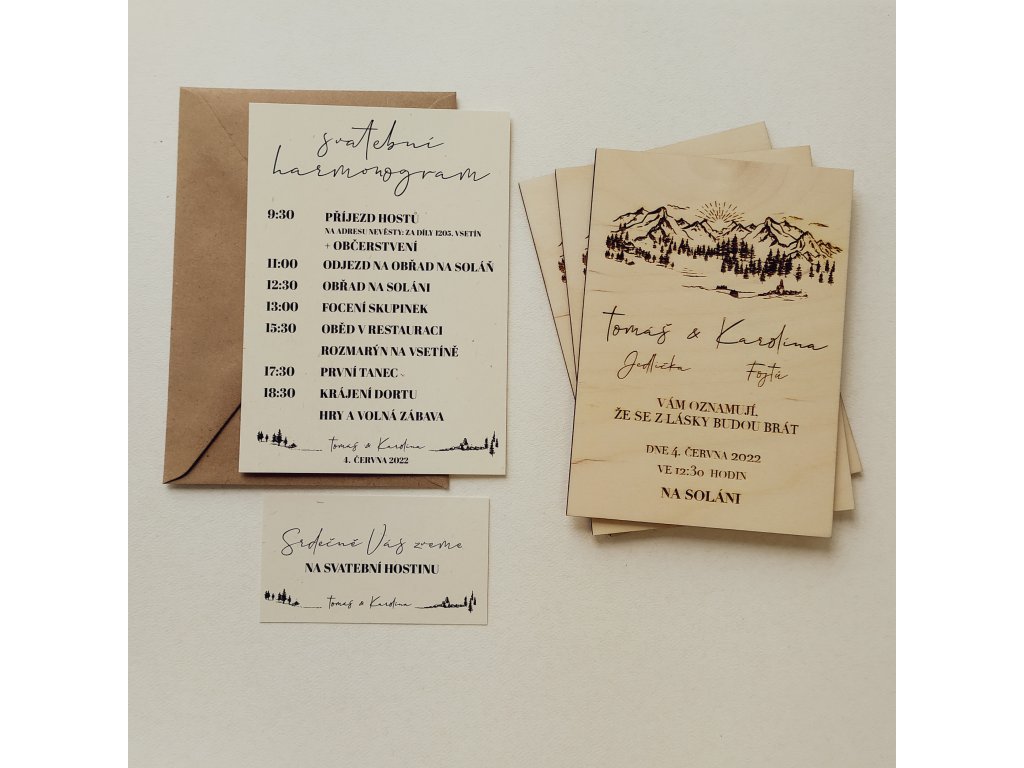 svatební
harmonogram
9:30 PŘÍJEZD HOSTŮ
NA ADRESU NEVĚSTY: ZA DÍLY 1205, VSETÍN
+ OBČERSTVENÍ
11:00 ODJEZD NA OBŘAD NA SOLÁŇ
12:30 OBŘAD NA SOLÁNI
13:00 FOCENÍ SKUPINEK
15:30 OBĚD V RESTAURACI
ROZMARÝN NA VSETÍNĚ
17:30 PRVNÍ TANEC
18:30 KRÁJENÍ DORTU
HRY A VOLNÁ ZÁBAVA
Tomáš & Karolína
4. ČERVNA 2022
Srdečně Vás zveme
NA SVATEBNÍ HOSTINU
Tomáš & Karolína
Tomáš & Karolína
Jedlička Fojtů
VÁM OZNAMUJÍ,
ŽE SE Z LÁSKY BUDOU BRÁT
DNE 4. ČERVNA 2022
VE 12:30 HODIN
NA SOLÁNI